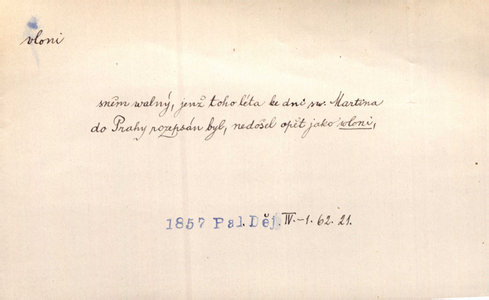 vloni
sněm walný, jenž toho léta ke dni sw. Martina
do Prahy rozepsán byl, nedošel opět jako wloni,
1857 Pal. Děj. IV.-1. 62. 21.